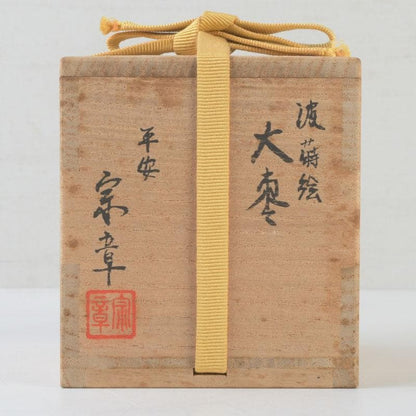 波蒔絵
大棗
平安
宗章
宗章